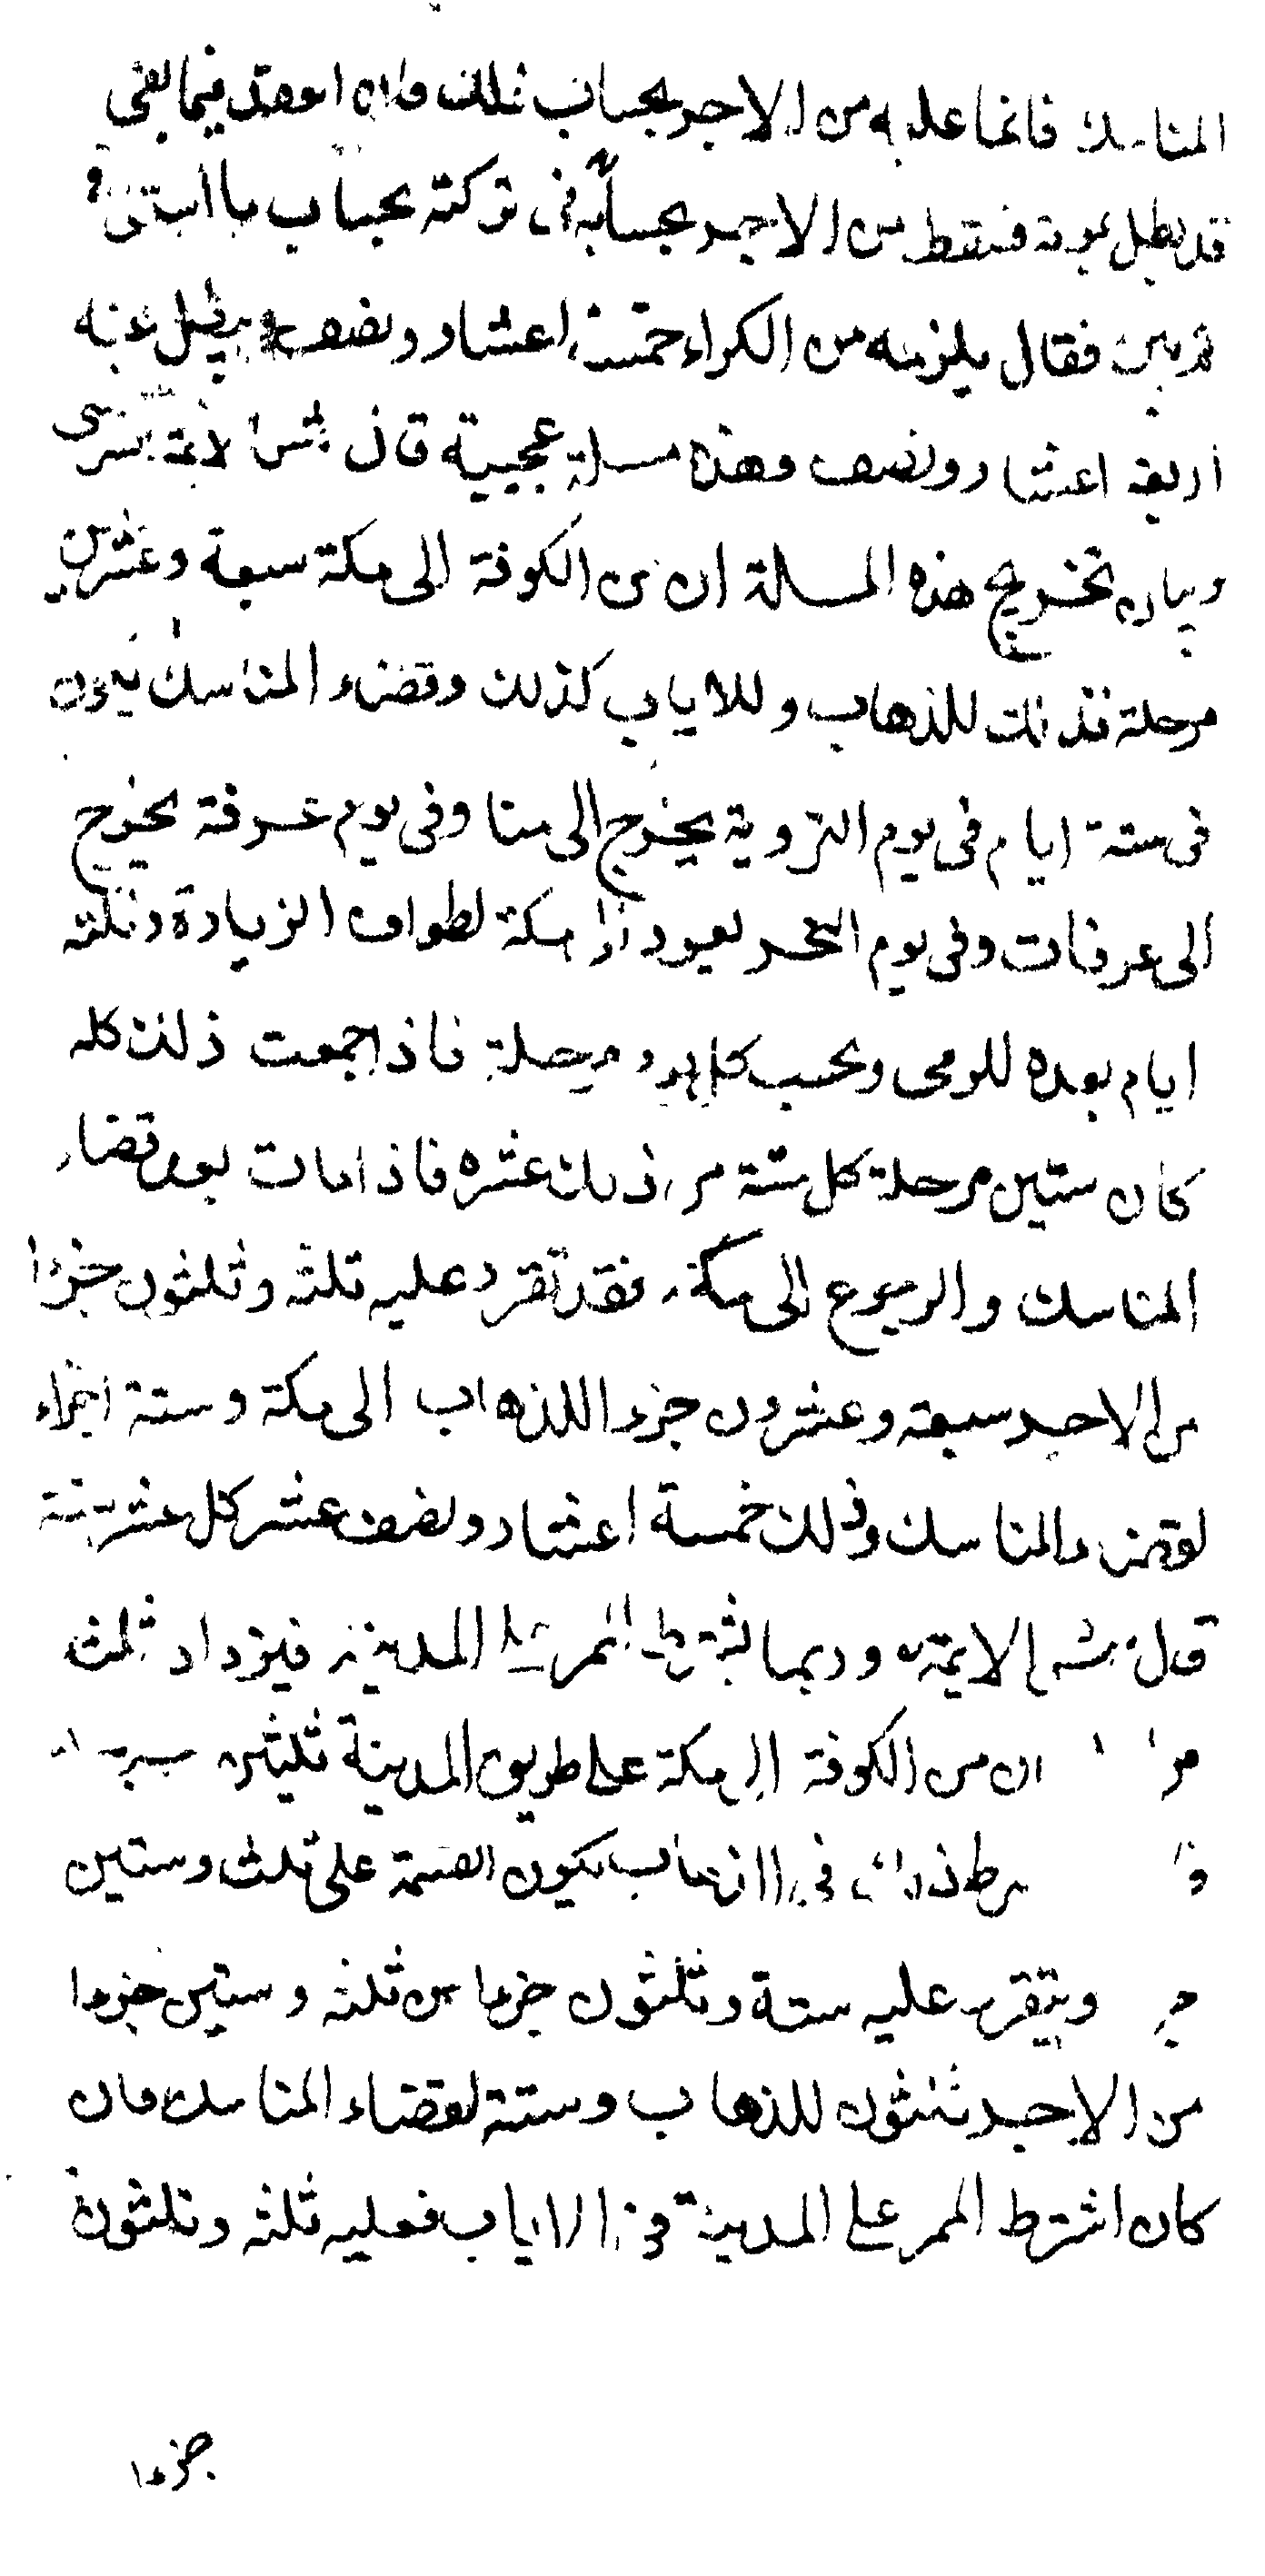 المناسك فانما عليه من الاجر بحساب ذلك فلان العقد فيما بقى
قد بطل بموته فسقط من الاجر بحسابه فى تركته بحساب ما استوفى
ثم بين فقال يلزمه من الكراء خمسة اعشار ونصف ويبطل عنه
اربعة اعشار ونصف وهذه مسلة عجيبة قال شمس الائمة السرخسى
وبيان تخريج هذه المسلة ان من الكوفة الى مكة سبعة وعشرين
مرحلة فذلك للذهاب وللاياب كذلك وقضاء المناسك يكون
فى ستة ايام فى يوم التروية يخرج الى منا وفى يوم عرفة يخرج
الى عرفات وفى يوم النحر يعود الى مكة لطواف الزيادة وثلثه
ايام بعده للرمى ويحسب كل يوم مرحلة فاذا جمعت ذلك كله
كان ستين مرحلة كل ستة من ذلك عشره فاذا مات بعد قضاء
المناسك والرجوع الى مكة فقد تقرر عليه ثلثه وثلثون جزءا
من الاجر سبعة وعشرون جزءا للذهاب الى مكة وستة اجزاء
لقضاء المناسك وذلك خمسة اعشار ونصف عشر كل عشر ستة
قال شمس الايمة وربما يشترط الممر على المدينة فيزداد ثلث
ان من الكوفة الى مكة على طريق المدينة ثلثين
شرط ذلك فى الذهاب يكون القسمة على ثلث وستين
ويتقرر عليه ستة وثلثون جزءا من ثلثه وستين جزءا
من الاجر ثلثون للذهاب وستة لقضاء المناسك فان
كان اشترط الممر على المدينة فى الاياب فعليه ثلثه وثلثون
جزءا